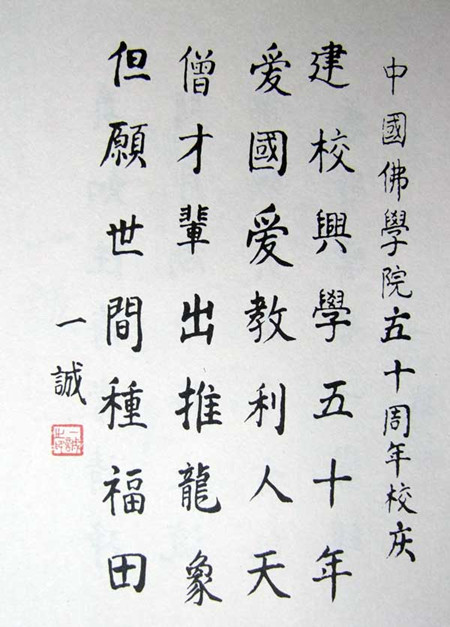 中國佛學院五十周年校庆
建校興學五十年
愛國愛教利人天
僧才輩出推龍象
但願世間種福田
一誠